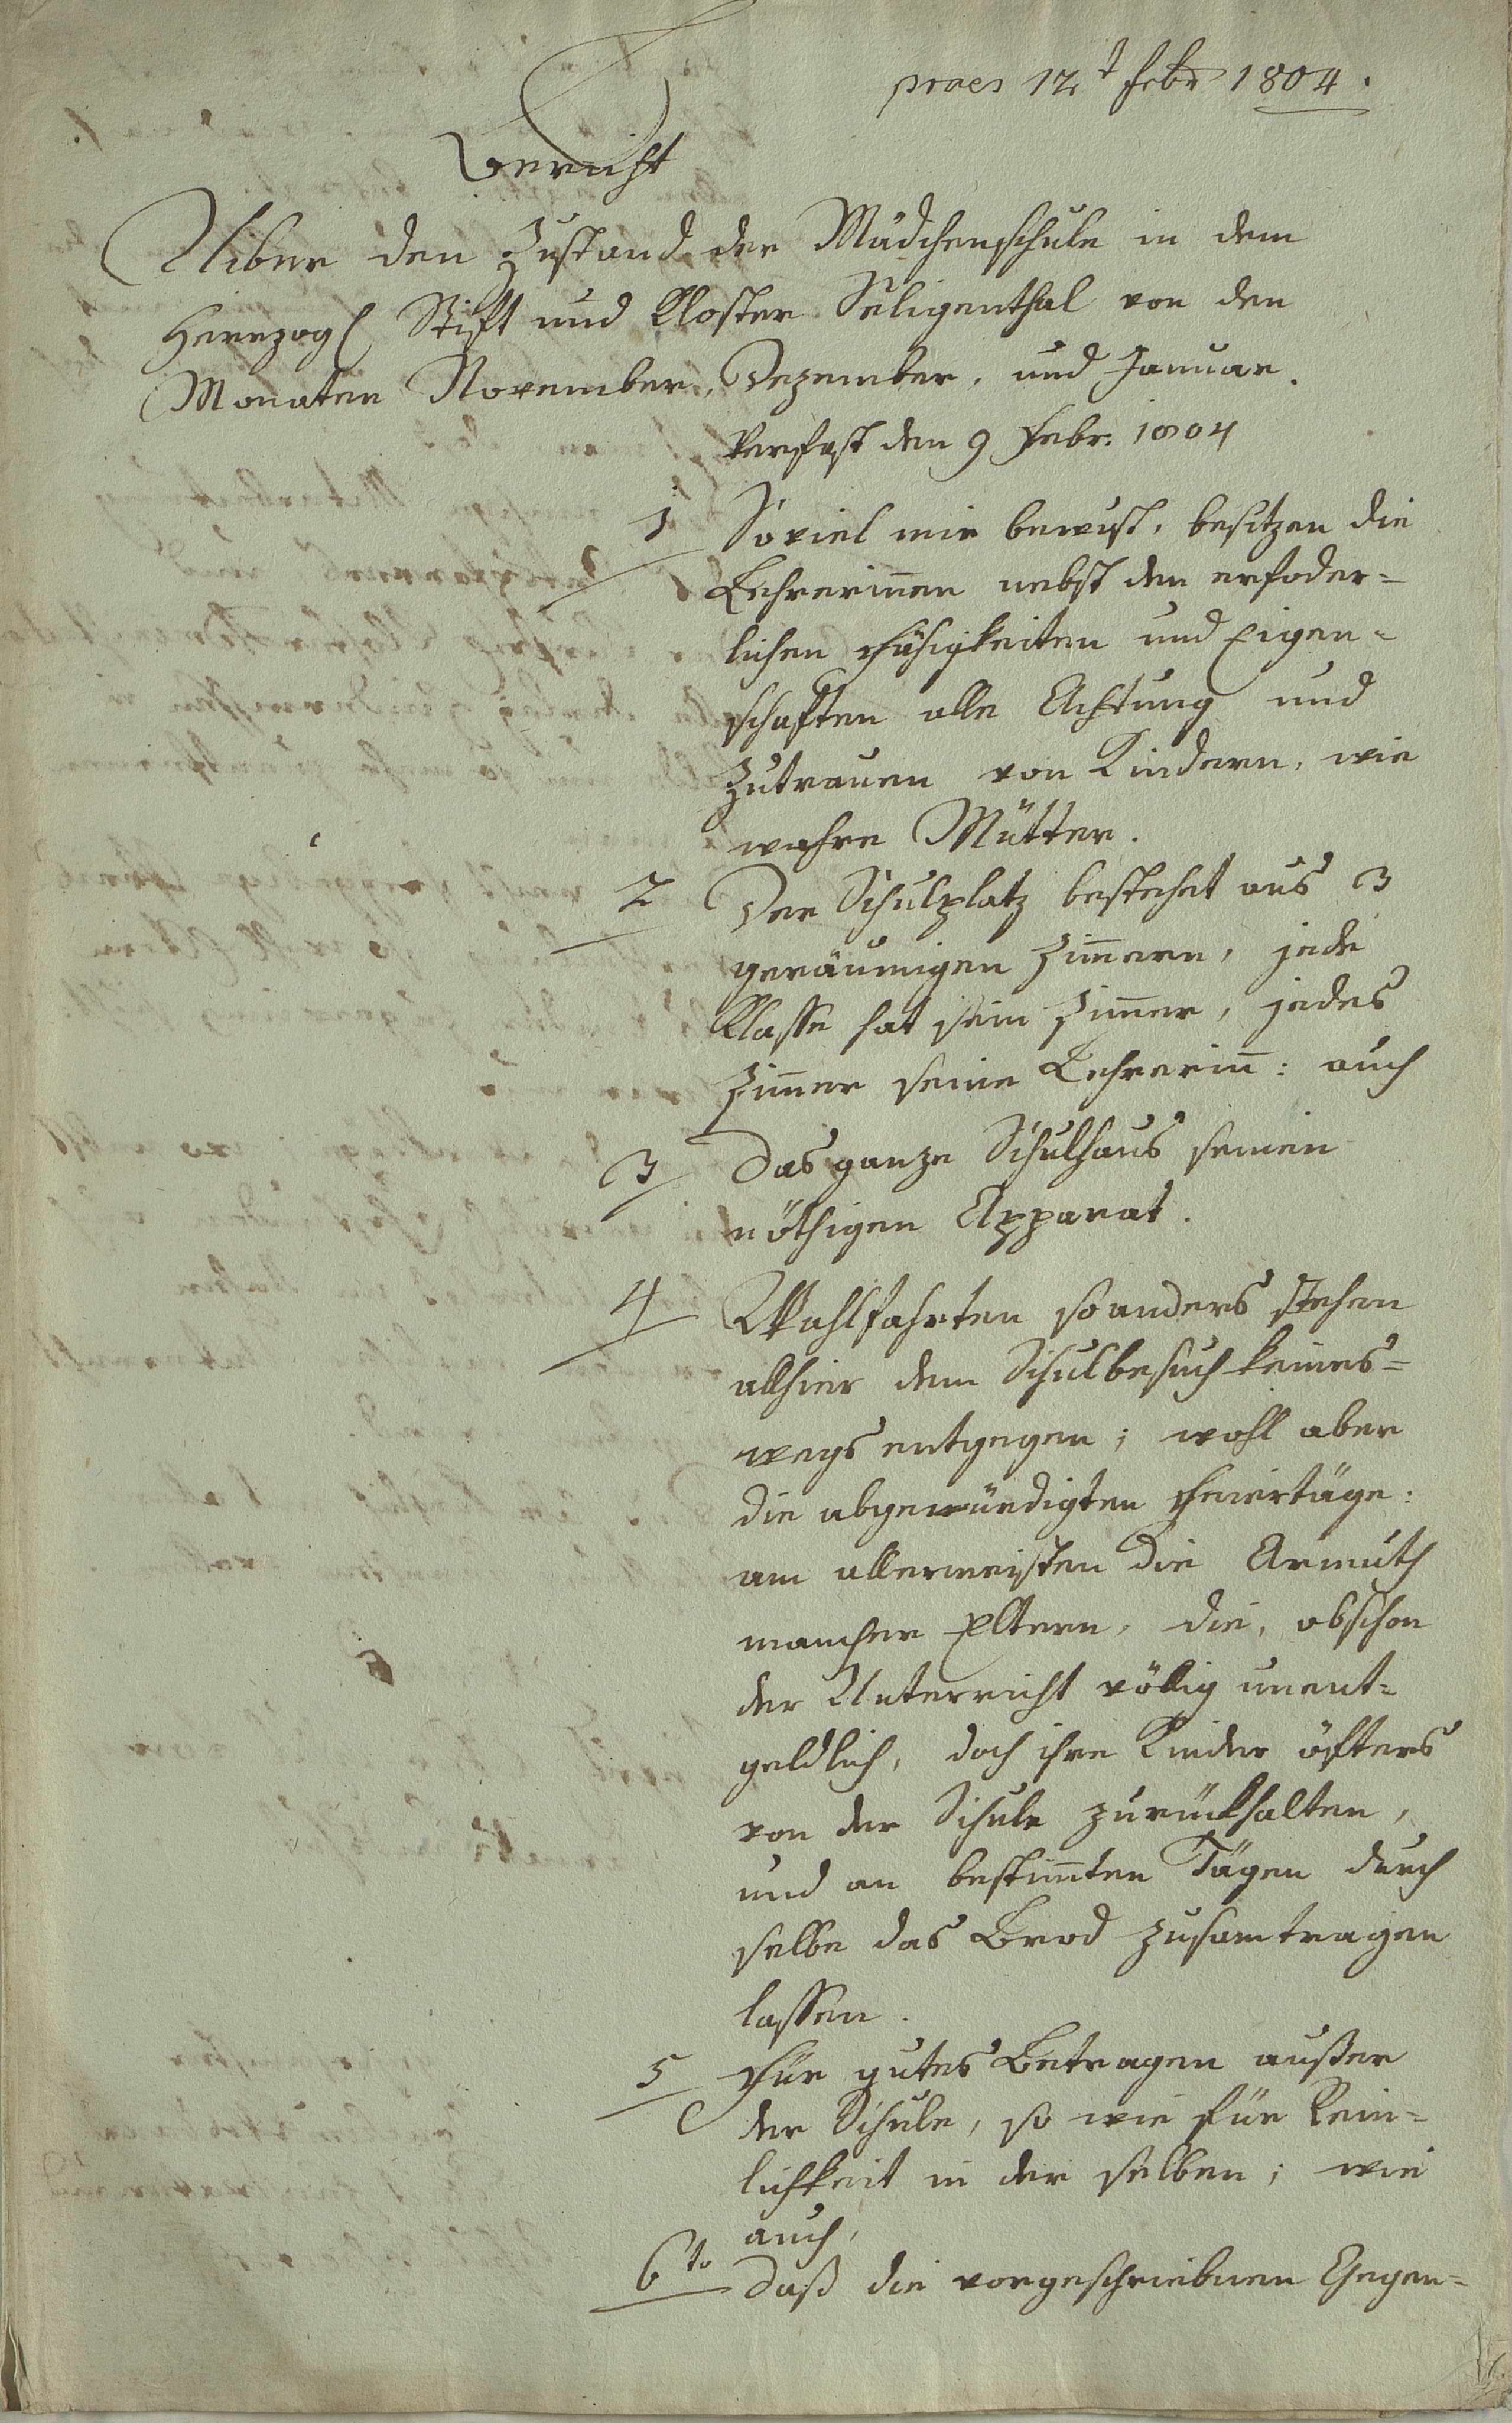 praes 12t febr 1804.
Bericht
Uiber den Zustand der Mädchenschule in dem
Herzogl Stift und Kloster Seligenthal von den
Monaten November, Dezember, und Januar.
Verfast den 9 Febr: 1804
1 Soviel mir bewust, besitzen die
Lehrerinen nebst den erfoder=
lichen Fähigkeiten und Eigen=
schaften alle Achtung und
Zutrauen von Kindern, wie
wahre Mütter.
2 Der Schulplatz bestehet aus 3
geräumigen Zimern, jede
Klasse hat sein Zimer, jedes
Zimer seine Lehrerin: auch
3 das ganze Schulhaus seinen
nöthigen Apparat.
4 Wahlfahrten so anders stehen
allhier dem Schulbesuch keines=
wegs entgegen; wohl aber
die abgewürdigten Feiertäge:
am allermeisten die Armuth
mancher Eltern, die, obschon
der Unterricht völlig unent=
geldlich, doch ihre Kinder öfters
von der Schule zurückhalten,
und an bestimten Tägen durch
selbe das Brod zusamtragen
lassen.
5 Für gutes Betragen außer
der Schule, so wie für Rein=
lichkeit in der selben; wie
auch,
6to daß die vorgeschriebnen Gegen=